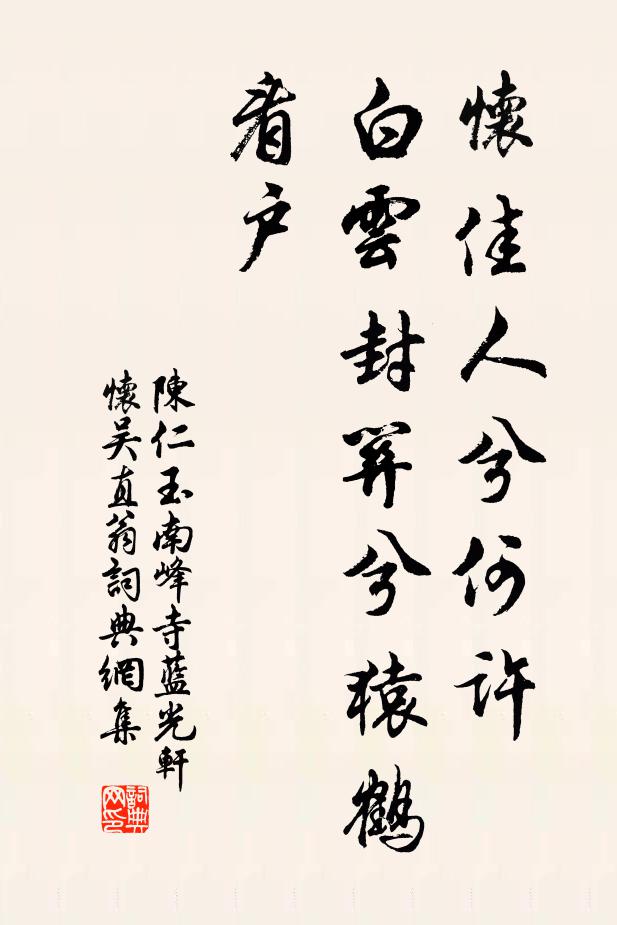 懷佳人兮何許
白雲封關兮猿鶴
看户
陳仁玉南峰寺藍光軒
懷吴直翁詞典網集
詞典
网印